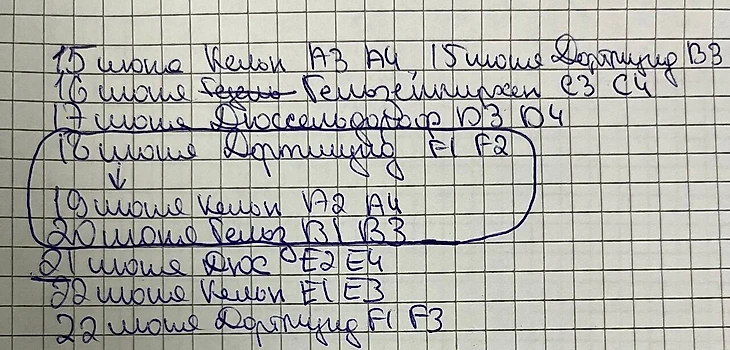 15 июня Кельн A3 A4, 15 июня Дортмунд B3
16 июня Гельзенкирхен C3 C4
17 июня Дюссельдорф D3 D4
18 июня Дортмунд F1 F2
19 июня Кельн A2 A4
20 июня Гельз B1 B3
21 июня Дюс E2 E4
22 июня Кельн E1 E3
22 июня Дортмунд F1 F3